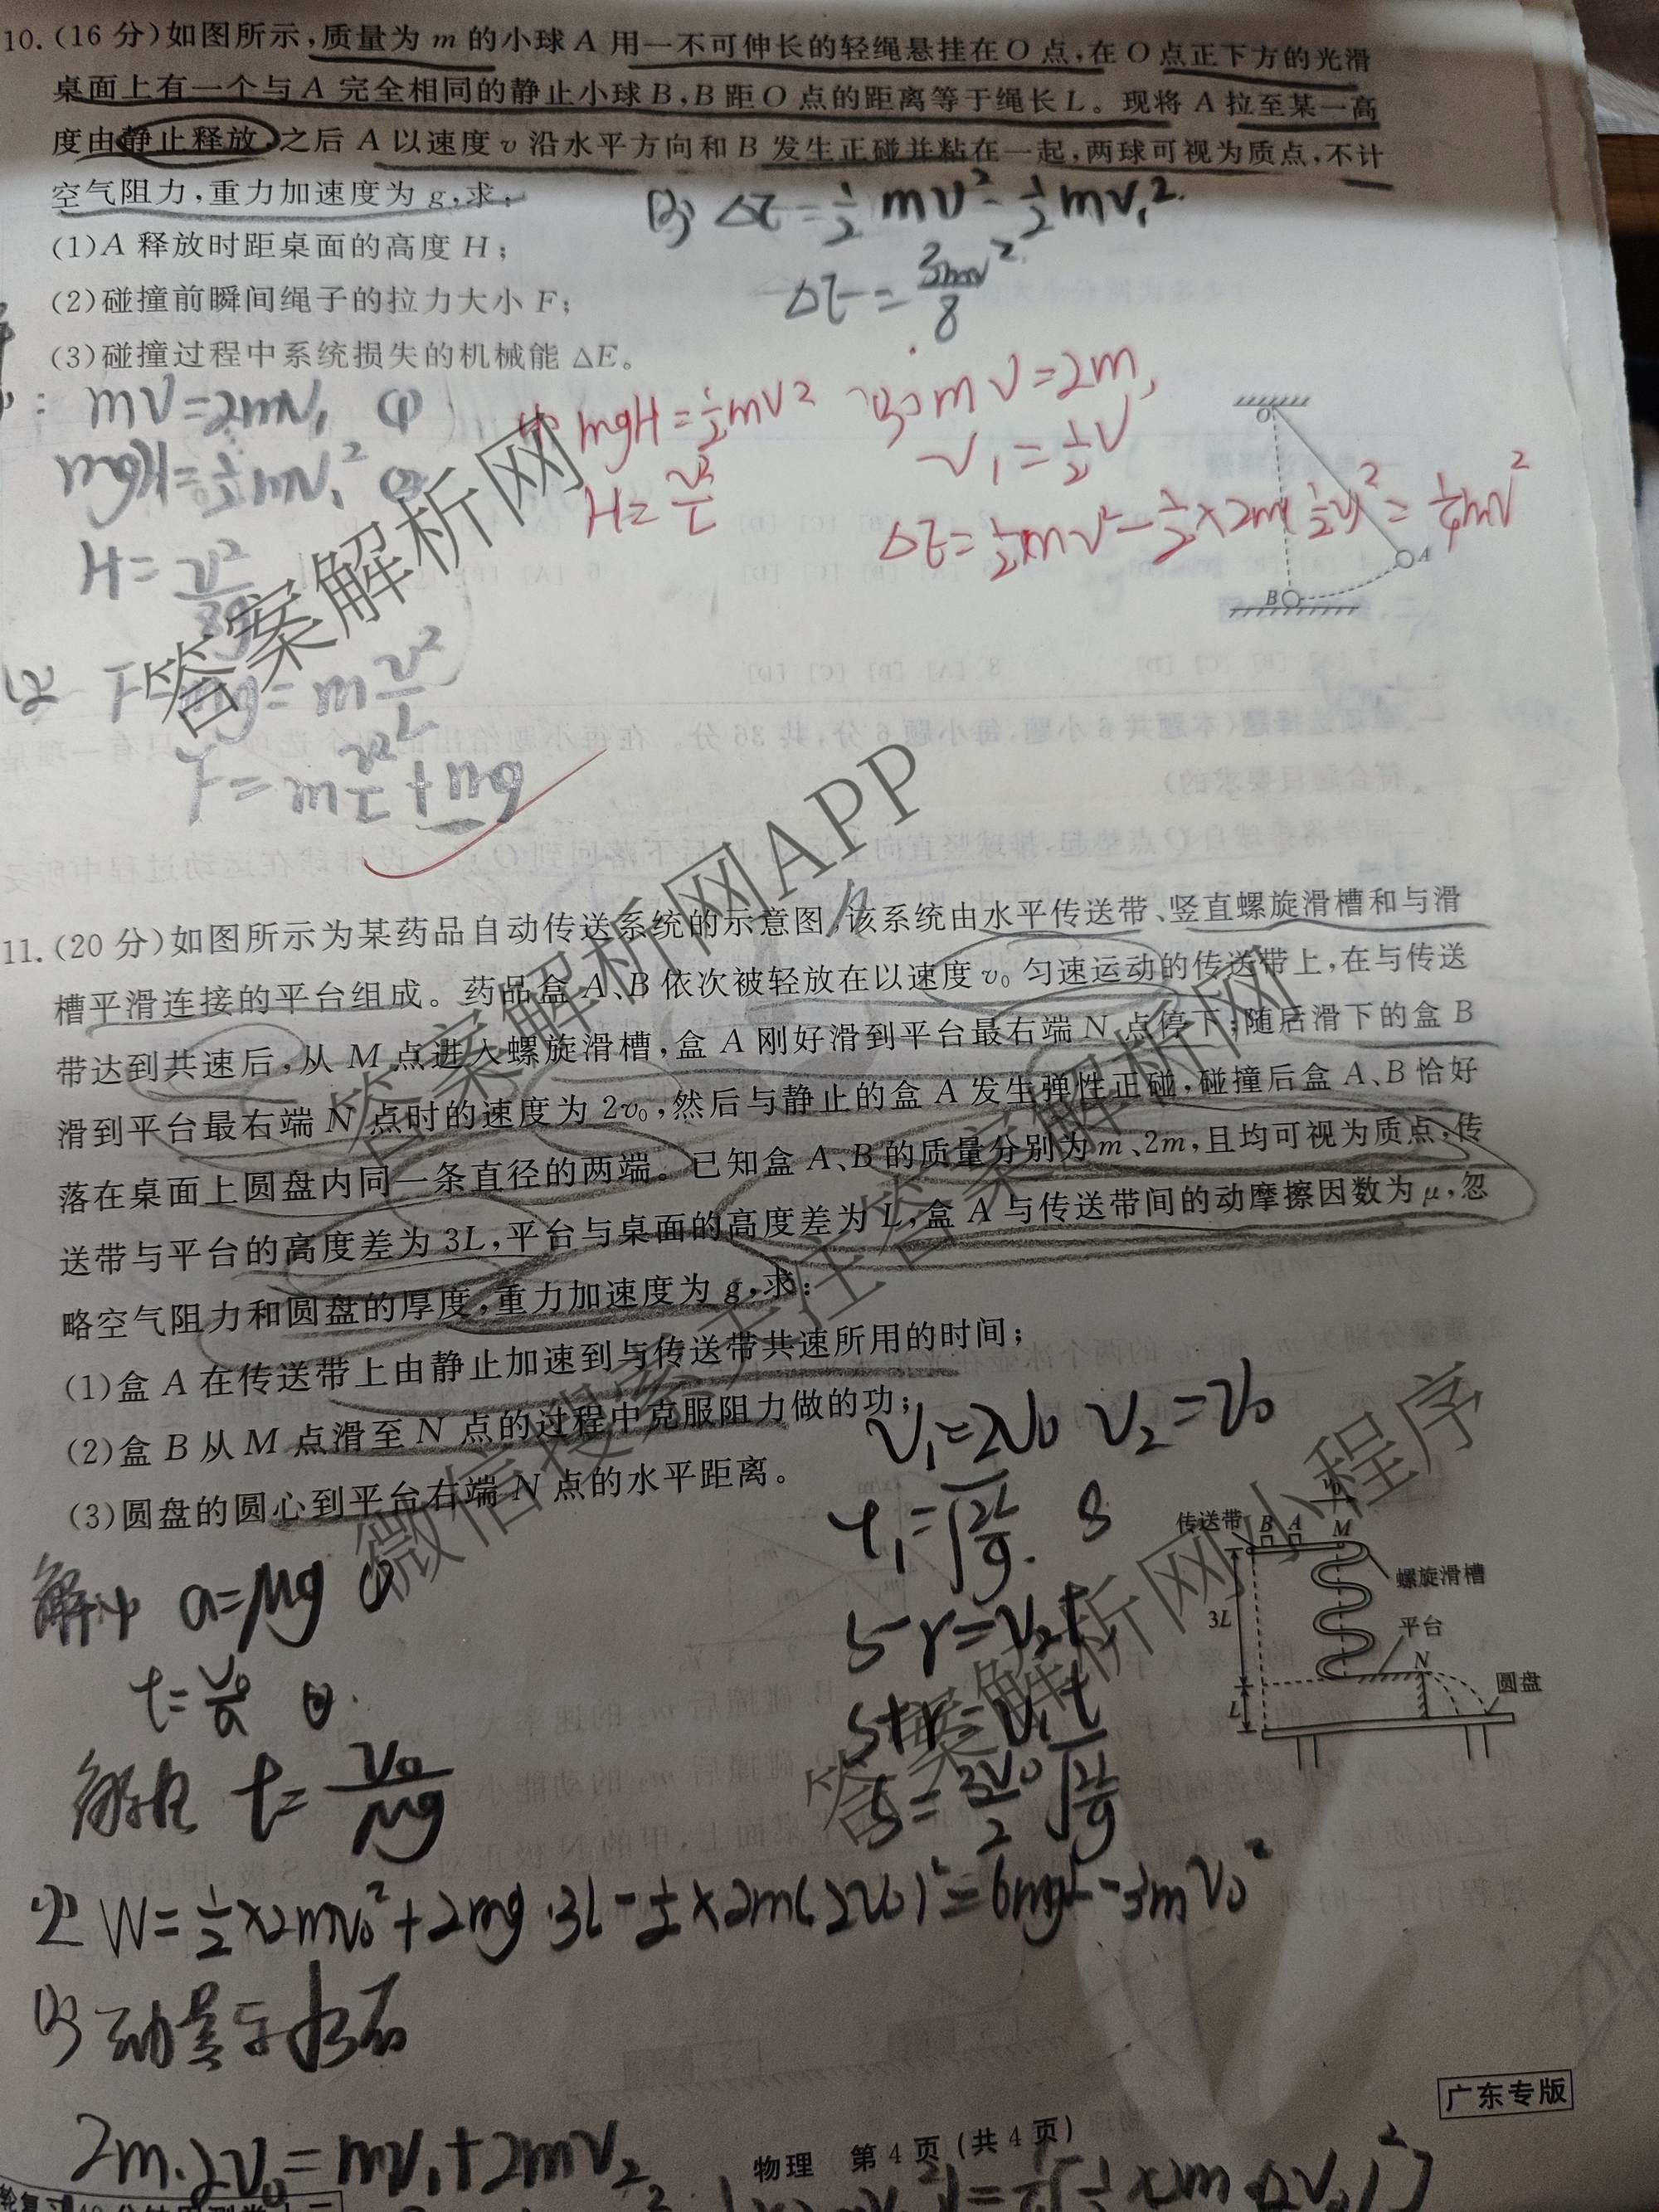 10.(16 分)如图所示,质量为 m 的小球 A 用一不可伸长的轻绳悬挂在 O 点,在 O 点正下方的光滑
桌面上有一个与 A 完全相同的静止小球 B,B 距 O 点的距离等于绳长 L。现将 A 拉至某一高
度由静止释放,之后 A 以速度 v 沿水平方向和 B 发生正碰并粘在一起,两球可视为质点,不计
空气阻力,重力加速度为 g,求:
(3) ΔE=½mv²-½mv₁²
(1)A 释放时距桌面的高度 H;
ΔE=3mv²/8
(2)碰撞前瞬间绳子的拉力大小 F;
(3)碰撞过程中系统损失的机械能 ΔE。
mv=2mv₁ ①
mgH=½mv₁² ②
H=v²/8g
mgH=½mv²
(3) mv=2m,
v₁=½v
ΔE=½mv²-½×2m(½v)²=¼mv²
O
A
B
(2) F-mg=m v²/L
F=m v²/L+mg
11.(20 分)如图所示为某药品自动传送系统的示意图,该系统由水平传送带、竖直螺旋滑槽和与滑
槽平滑连接的平台组成。药品盒 A、B 依次被轻放在以速度 v₀ 匀速运动的传送带上,在与传送
带达到共速后,从 M 点进入螺旋滑槽,盒 A 刚好滑到平台最右端 N 点停下;随后滑下的盒 B
滑到平台最右端 N 点时的速度为 2v₀,然后与静止的盒 A 发生弹性正碰,碰撞后盒 A、B 恰好
落在桌面上圆盘内同一条直径的两端。已知盒 A、B 的质量分别为 m、2m,且均可视为质点,传
送带与平台的高度差为 3L,平台与桌面的高度差为 L,盒 A 与传送带间的动摩擦因数为 μ,忽
略空气阻力和圆盘的厚度,重力加速度为 g,求:
(1)盒 A 在传送带上由静止加速到与传送带共速所用的时间;
(2)盒 B 从 M 点滑至 N 点的过程中克服阻力做的功;
(3)圆盘的圆心到平台右端 N 点的水平距离。
v₁=2v₀ v₂=v₀
t₁=√(2L/g) s
s-r=v₂t
s+r=v₁t
s=3v₀/2 √(2L/g)
传送带 B A M
v₀
螺旋滑槽
3L
平台
N
圆盘
L
解(1) a=μg ①
t=v₀/a ②
解得 t=v₀/μg
(2) W=½×2mv₀²+2mg·3L-½×2m(2v₀)²=6mgL-3mv₀²
(3)
2m·2v₀=mv₁+2mv₂
广东专版
物理 第 4 页(共 4 页)
答案解析网
答案解析网APP
微信搜索关注答案解析网
答案解析网小程序